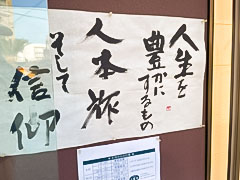 人生を
豊かに
するもの
人本旅
そして
信仰